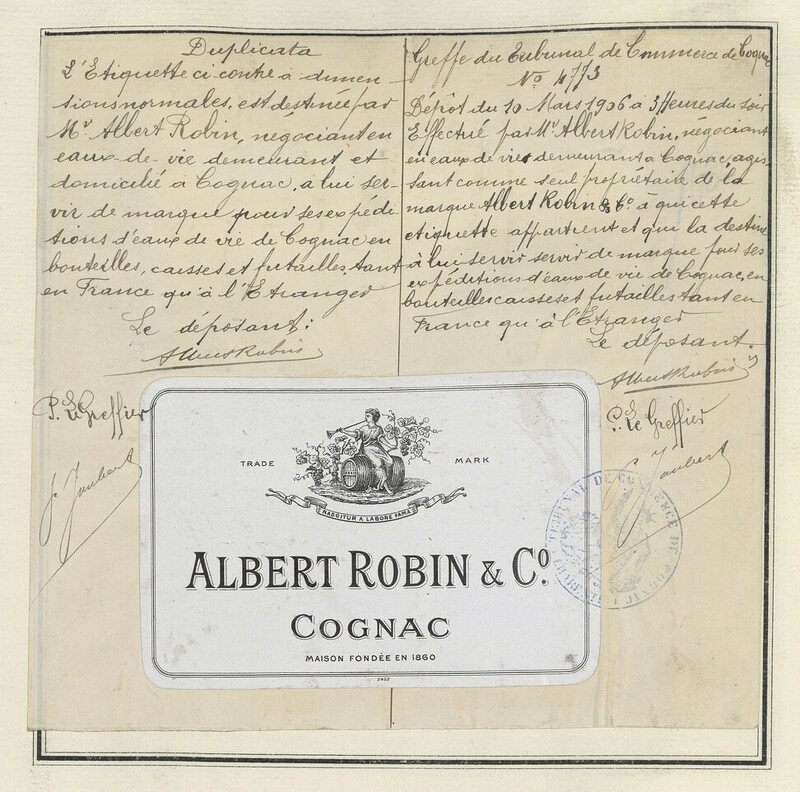 Duplicata
L'Etiquette ci-contre à dimen-
sions normales, est destinée par
Mr Albert Robin, négociant en
eaux-de-vie demeurant et
domicilié à Cognac, à lui ser-
vir de marque pour ses expédi-
tions d'eaux de vie de Cognac en
bouteilles, caisses et futailles, tant
en France qu'à l'Etranger
Le déposant:
Albert Robin
P. Le Greffier
J. Joubert
Greffe du Tribunal de Commerce de Cognac
No 4773
Dépôt du 10 Mars 1906 à 3 Heures du soir
Effectué par Mr Albert Robin, négociant
en eaux de vie demeurant à Cognac, agis-
sant comme seul propriétaire de la
marque Albert Robin & Co à qui cette
etiquette appartient et qui la destine
à lui servir servir de marque pour ses
expéditions d'eaux de vie de Cognac, en
bouteilles caisses et futailles tant en
France qu'à l'Etranger
Le déposant.
Albert Robin
P. Le Greffier
J. Joubert
TRIBUNAL DE COMMERCE DE COGNAC
CHARENTE
TRADE MARK
NASCITUR A LABORE FAMA
ALBERT ROBIN & Co.
COGNAC
MAISON FONDÉE EN 1860